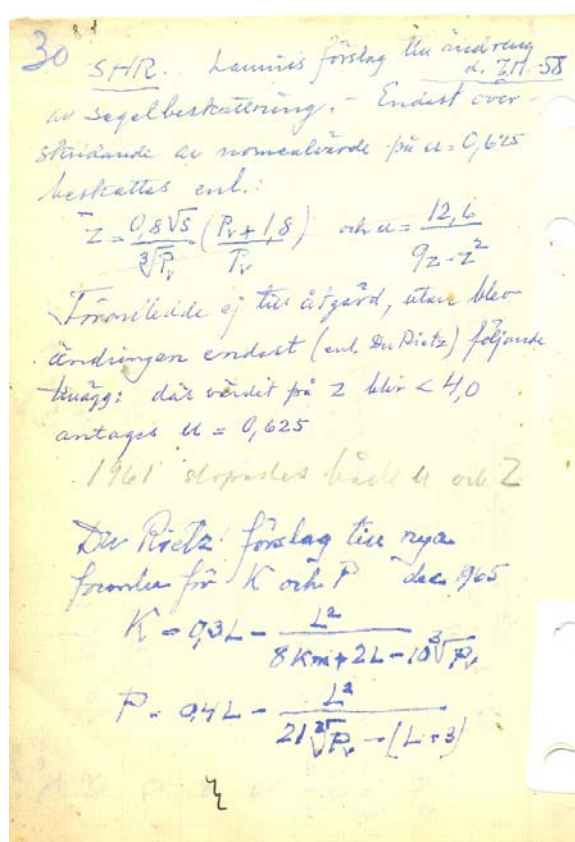 30
SHR. förslag till ändring
av segelbeskattning. - Endast över-
skridande av på u = 0,625
beskattas enl.:
Z = 0,8√S / ∛Pv (Pv + 1,8 / Pv) och u = 12,6 / 9z - z²
Föranledde ej till åtgärd, utan blev
ändringen endast (enl. Du Rietz) följande
tillägg: då värdet på Z blir < 4,0
antages u = 0,625
1961 slopades både u och Z
Du Rietz' förslag till nya
formler för K och P dec. 1965
K = 0,3L - L² / 8Km + 2L - 10∛Pv
P = 0,4L - L² / 21∛Pv - (L + 3)